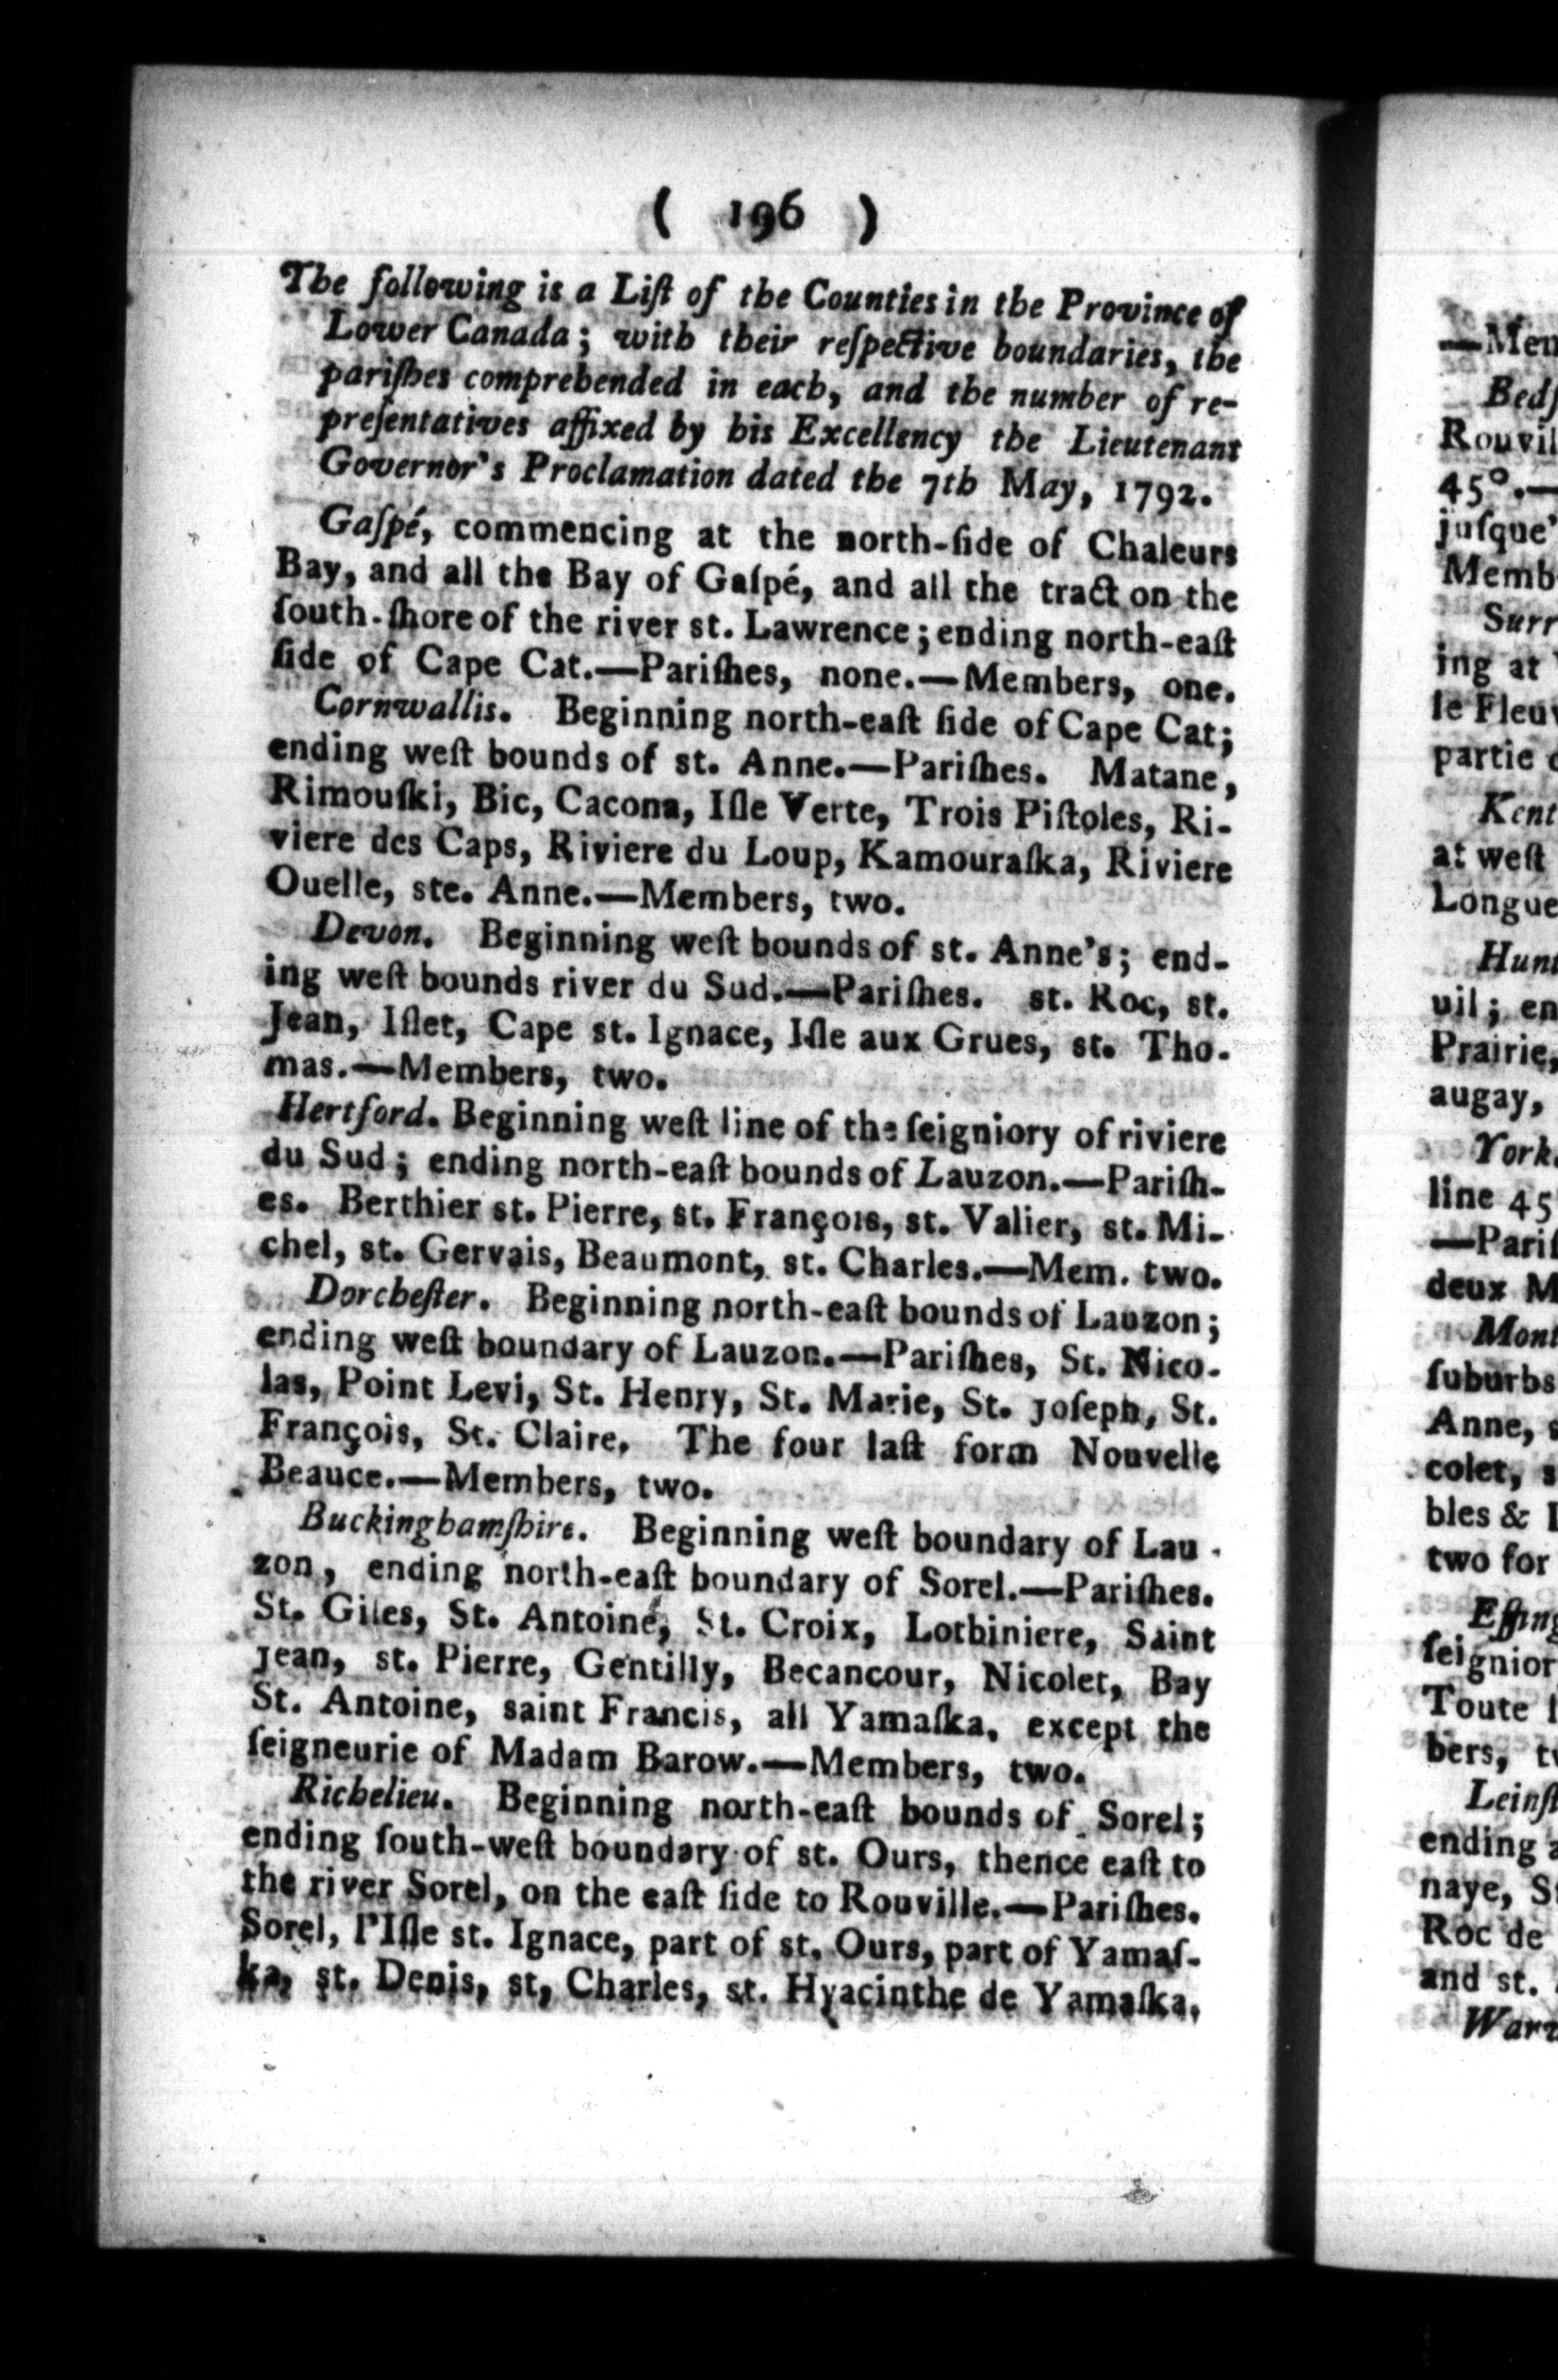 ( 196 )
The following is a Liſt of the Counties in the Province of
Lower Canada; with their reſpective boundaries, the
pariſhes comprehended in each, and the number of re-
preſentatives affixed by his Excellency the Lieutenant
Governor's Proclamation dated the 7th May, 1792.
Gaſpé, commencing at the north-ſide of Chaleurs
Bay, and all the Bay of Gaſpé, and all the tract on the
ſouth-ſhore of the river st. Lawrence; ending north-eaſt
ſide of Cape Cat.—Pariſhes, none.—Members, one.
Cornwallis. Beginning north-eaſt ſide of Cape Cat;
ending weſt bounds of st. Anne.—Pariſhes. Matane,
Rimouſki, Bic, Cacona, Iſle Verte, Trois Piſtoles, Ri-
viere des Caps, Riviere du Loup, Kamouraſka, Riviere
Ouelle, ste. Anne.—Members, two.
Devon. Beginning weſt bounds of st. Anne's; end-
ing weſt bounds river du Sud.—Pariſhes. st. Roc, st.
Jean, Iſlet, Cape st. Ignace, Iſle aux Grues, st. Tho-
mas.—Members, two.
Hertford. Beginning weſt line of the ſeigniory of riviere
du Sud; ending north-eaſt bounds of Lauzon.—Pariſh-
es. Berthier st. Pierre, st. François, st. Valier, st. Mi-
chel, st. Gervais, Beaumont, st. Charles.—Mem. two.
Dorcheſter. Beginning north-eaſt bounds of Lauzon;
ending weſt boundary of Lauzon.—Pariſhes, St. Nico-
las, Point Levi, St. Henry, St. Marie, St. Joſeph, St.
François, St. Claire. The four laſt form Nouvelle
Beauce.—Members, two.
Buckinghamſhire. Beginning weſt boundary of Lau-
zon, ending north-eaſt boundary of Sorel.—Pariſhes.
St. Giles, St. Antoine, St. Croix, Lotbiniere, Saint
Jean, st. Pierre, Gentilly, Becancour, Nicolet, Bay
St. Antoine, saint Francis, all Yamaſka, except the
ſeigneurie of Madam Barow.—Members, two.
Richelieu. Beginning north-eaſt bounds of Sorel;
ending ſouth-weſt boundary of st. Ours, thence eaſt to
the river Sorel, on the eaſt ſide to Rouville.—Pariſhes.
Sorel, l'Iſle st. Ignace, part of st. Ours, part of Yamaſ-
ka, st. Denis, st, Charles, st. Hyacinthe de Yamaſka,
—Men
Bedf
Rouvil
45°.—
juſque'
Memb
Surr
ing at
le Fleu
partie
Kent
at weſt
Longue
Hunt
uil; en
Prairie,
augay,
York.
line 45
—Pariſ
deux M
Mont
ſuburbs
Anne, s
colet, s
bles & I
two for
Effing
ſeignior
Toute l
bers, t
Leinſt
ending a
naye, S
Roc de
and st.
Warw